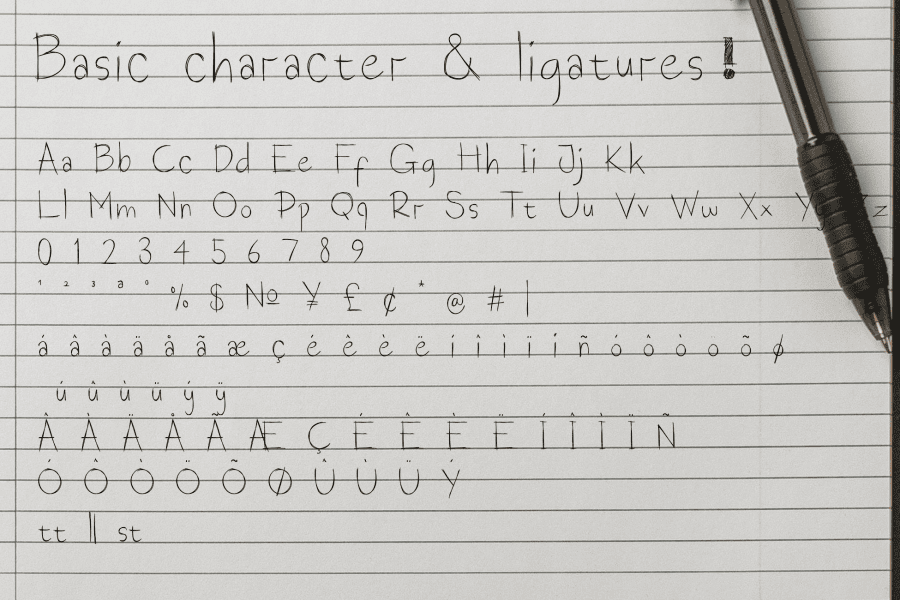 Basic character & ligatures!
Aa Bb Cc Dd Ee Ff Gg Hh Ii Jj Kk
Ll Mm Nn Oo Pp Qq Rr Ss Tt Uu Vv Ww Xx
0 1 2 3 4 5 6 7 8 9
¹ ² ³ ª º % $ № ¥ £ ¢ * @ # |
á â à ä å ã æ ç é ê è ë í î ì ï í ñ ó ô ò ö õ ø
ú û ù ü ý ÿ
Â À Ä Å Ã Æ Ç É Ê È Ë Í Î Ì Ï Ñ
Ó Ô Ò Ö Õ Ø Û Ù Ü Ý
tt ll st